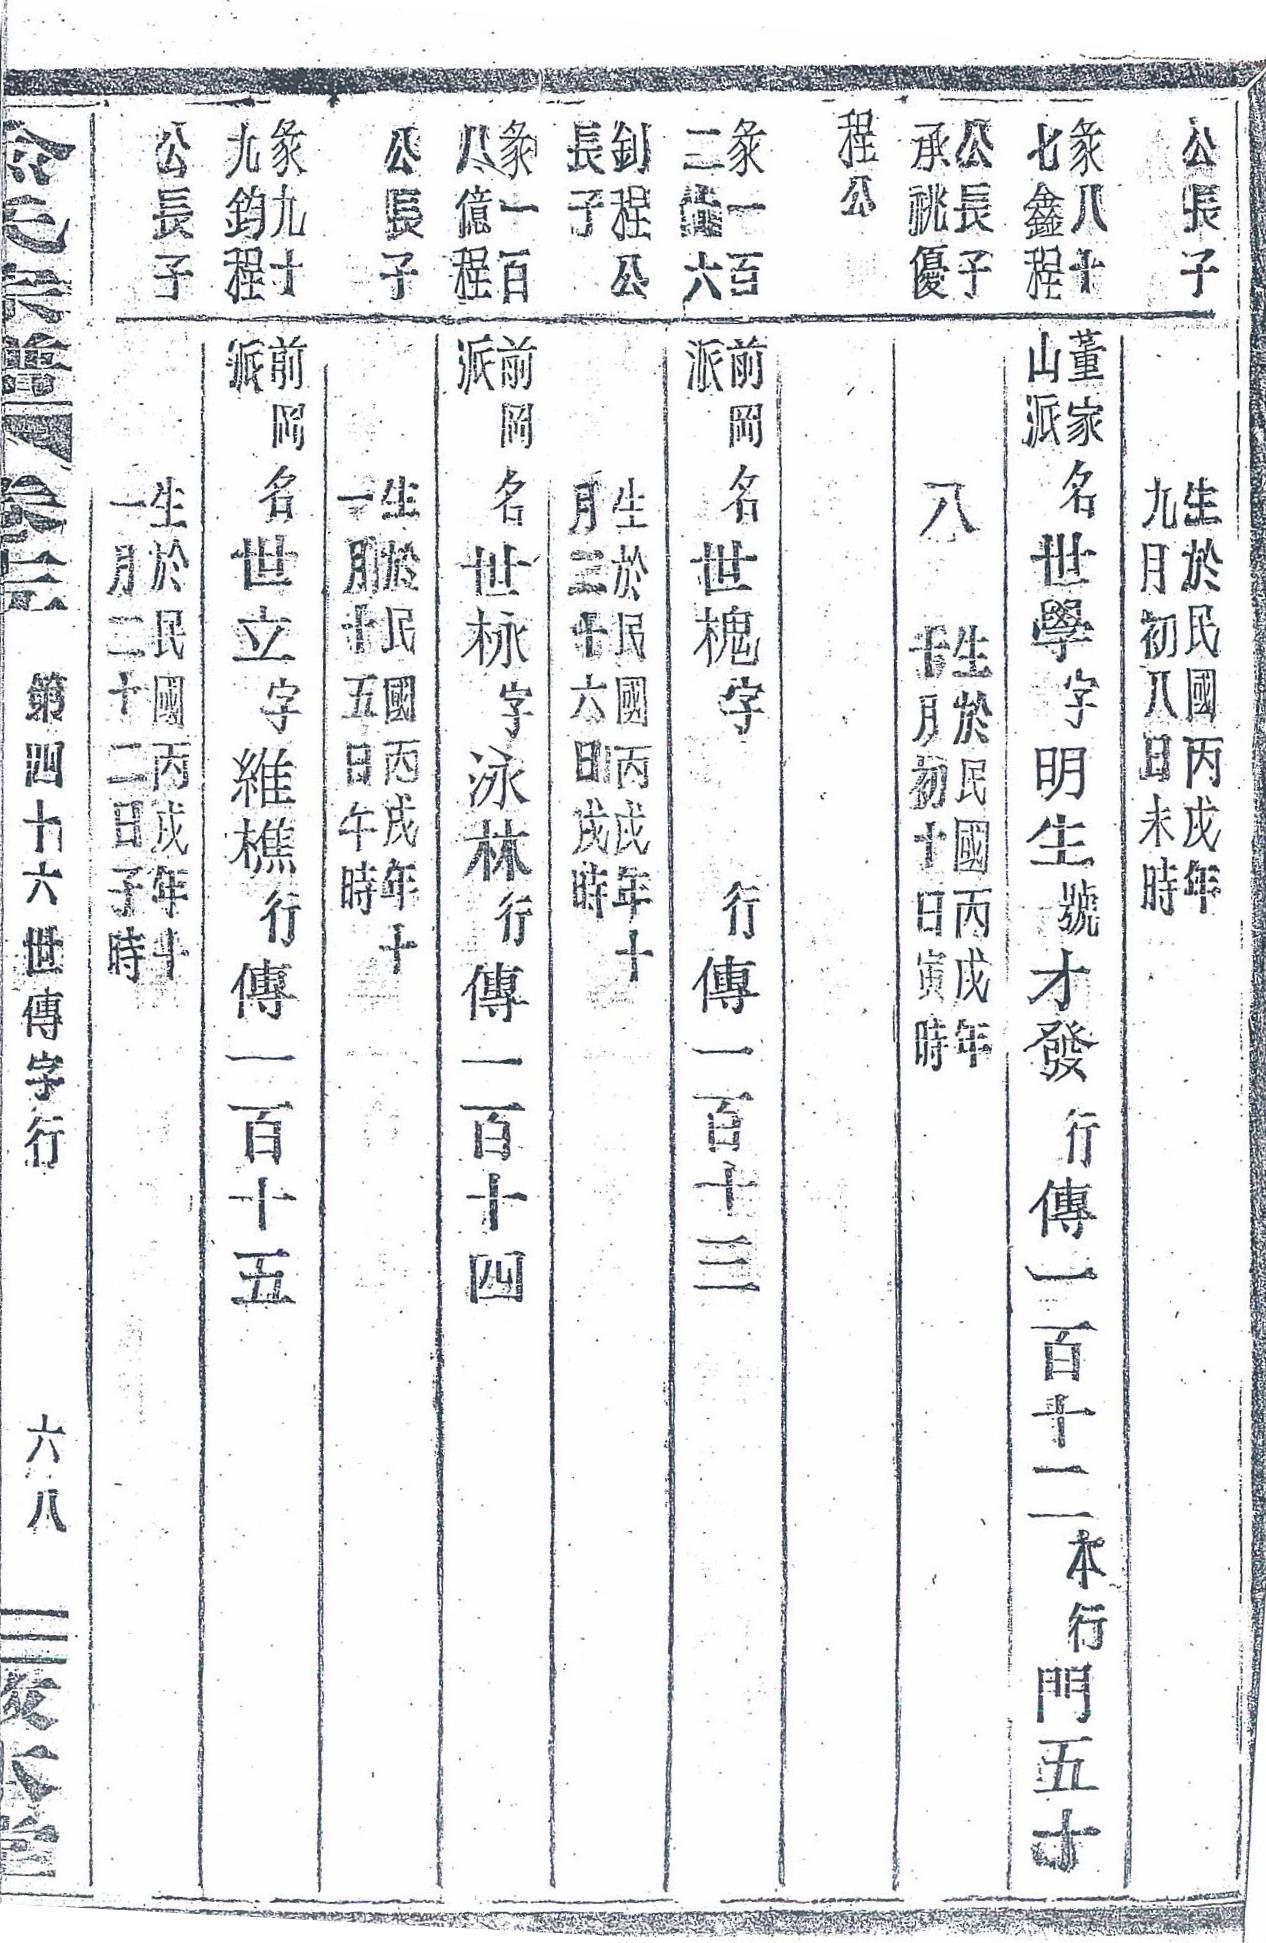 公長子
生於民國丙戌年
九月初八日未時
彖八十
七鑫程
董家
山派
名世學字明生號才發行傳一百十二本行門五十
公長子
承祧優
八
生於民國丙戌年
十月初十日寅時
程公
彖一百
二 六
前岡
派
名世槐字 行傳一百十三
釗程公
長子
生於民國丙戌年十
月二十六日戌時
彖一百
八億程
前岡
派
名世栐字泳林行傳一百十四
公長子
生於民國丙戌年十
一月十五日午時
彖九十
九鈞程
前岡
派
名世立字維樵行傳一百十五
公長子
生於民國丙戌年十
一月二十二日子時
氏宗譜 卷
第四十六世傳字行
六八
本堂